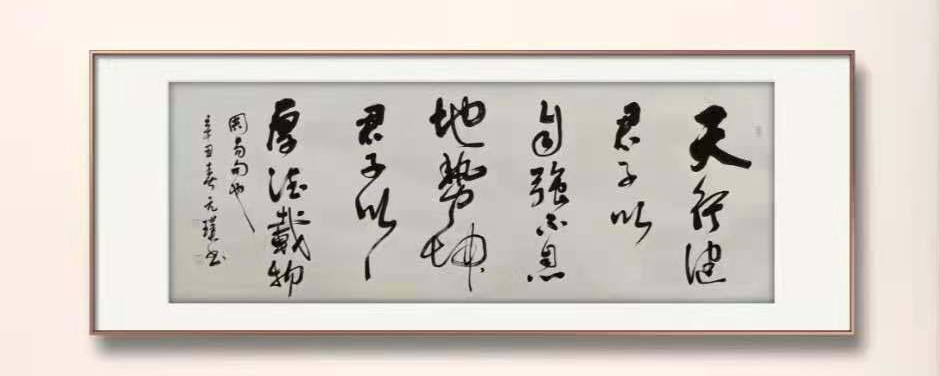 天行健
君子以
自強不息
地勢坤
君子以
厚德載物
周易句也
辛丑春元璞书